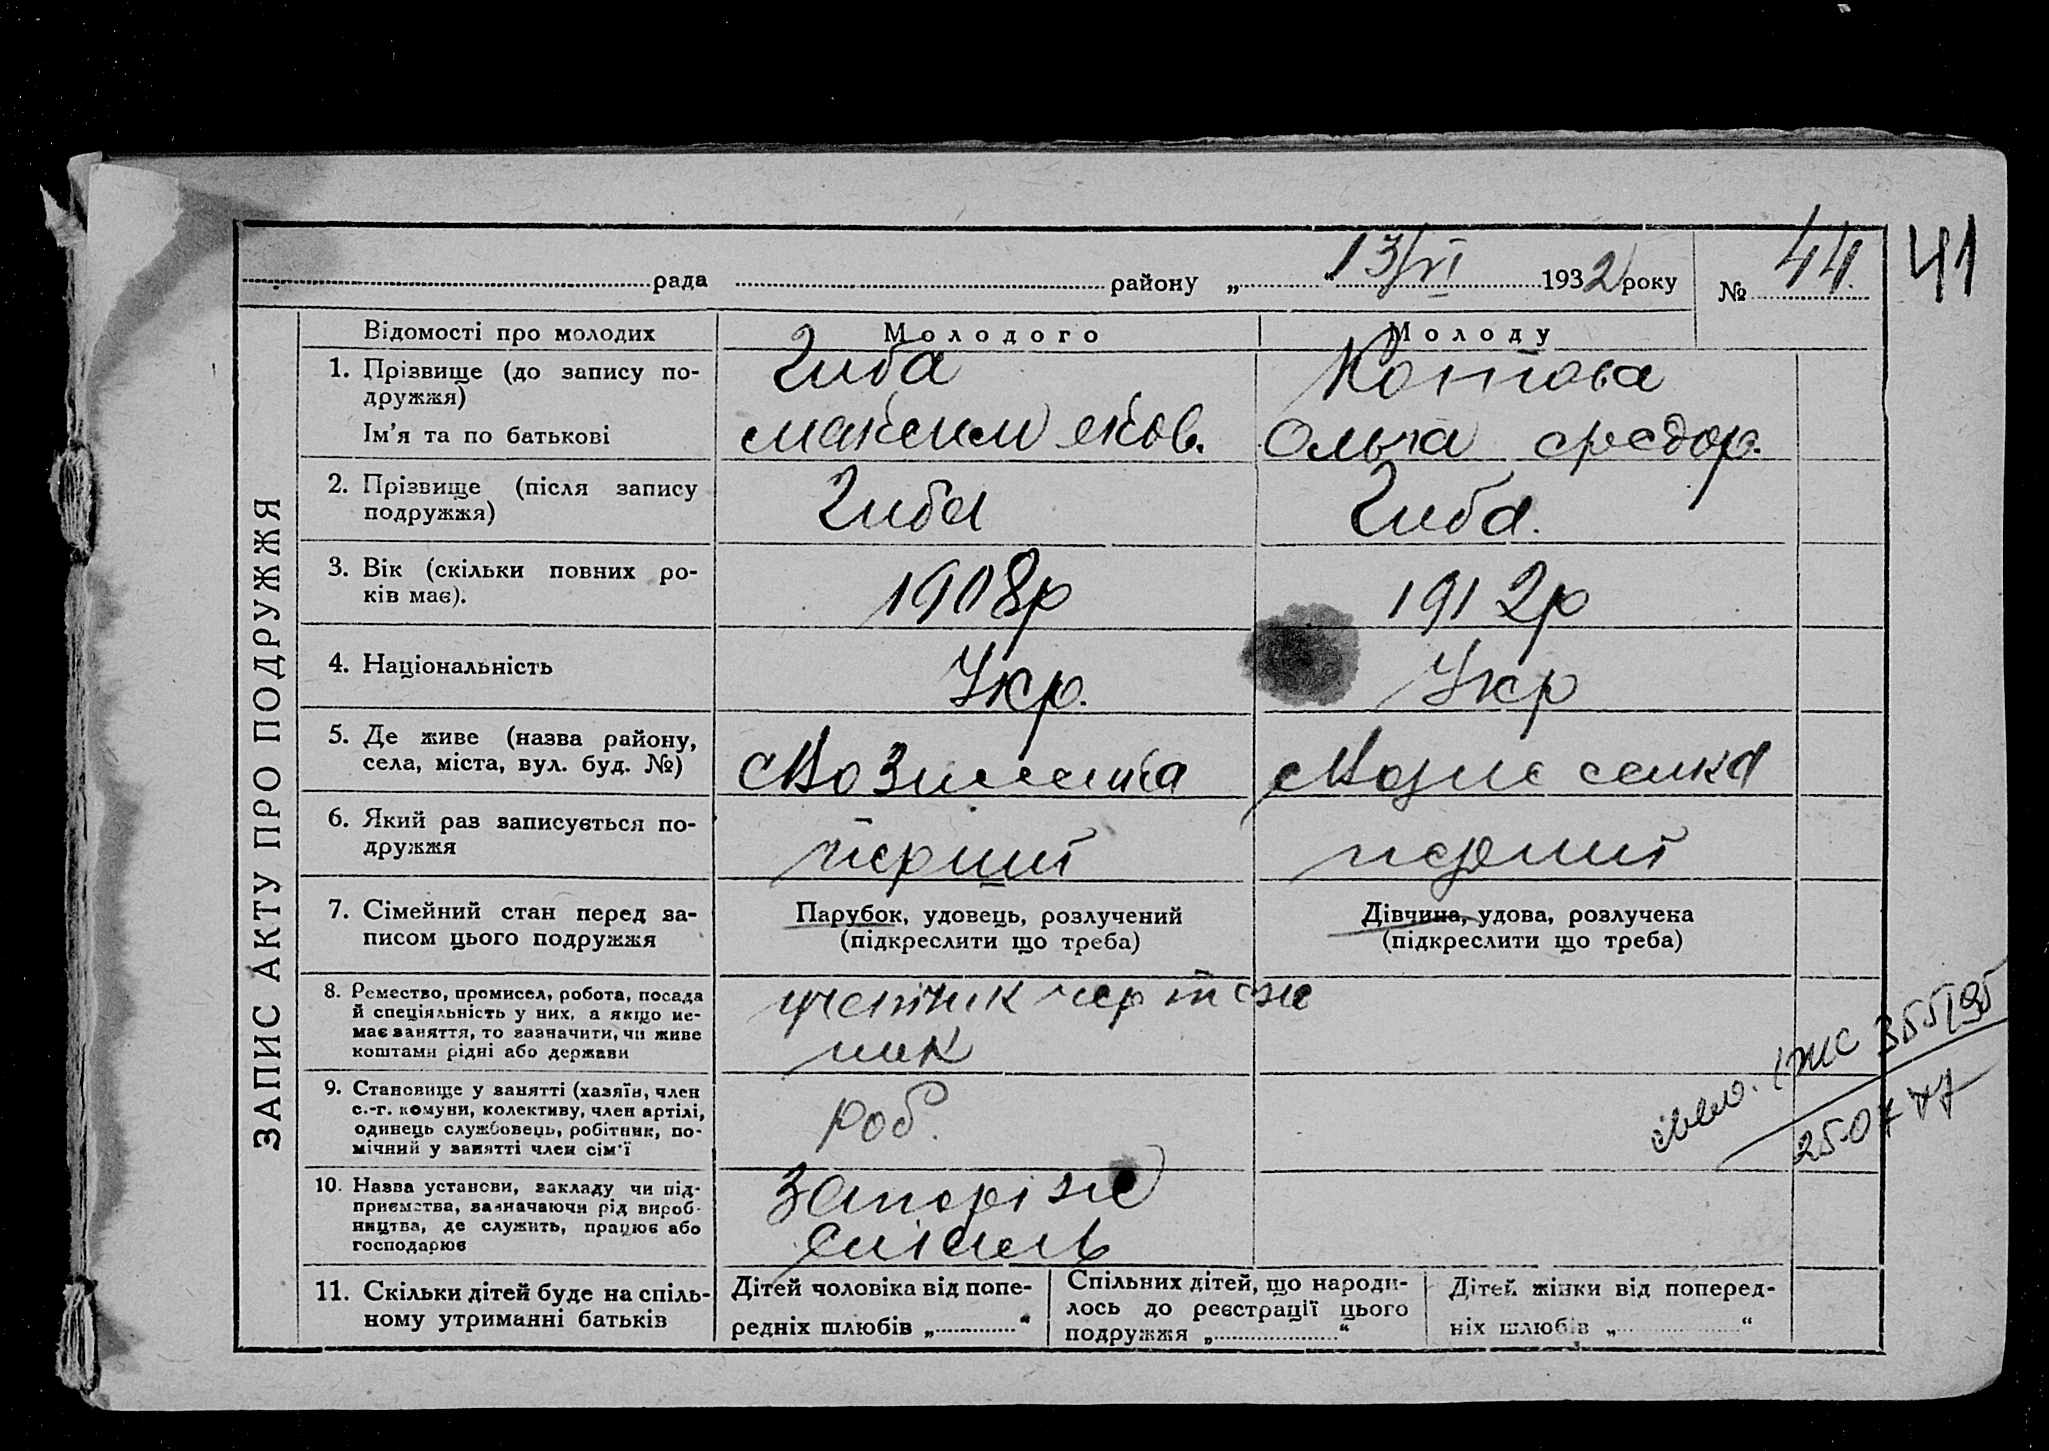 ЗАПИС АКТУ ПРО ПОДРУЖЖЯ
рада району „ 13/VI “ 1932 року № 44
41
Відомості про молодих Молодого Молоду
1. Прізвище (до запису по-
дружжя)
Гиба Котова
Ім'я та по батькові Максим Яков. Ольга Федор.
2. Прізвище (після запису
подружжя)
Гиба Гиба.
3. Вік (скільки повних ро-
ків має).
1908р 1912р
4. Національність Укр. Укр
5. Де живе (назва району,
села, міста, вул. буд. №)
6. Який раз записується по-
дружжя
перший перший
7. Сімейний стан перед за-
писом цього подружжя
Парубок, удовець, розлучений
(підкреслити що треба)
Дівчина, удова, розлучена
(підкреслити що треба)
8. Ремество, промисел, робота, посада
й спеціяльність у них, а якщо не-
має заняття, то зазначити, чи живе
коштами рідні або держави
чертеж
ник
9. Становище у занятті (хазяїн, член
с.-г. комуни, колективу, член артілі,
одинець службовець, робітник, по-
мічний у занятті член сім'ї
роб.
10. Назва установи, закладу чи під-
приємства, зазначаючи рід вироб-
ництва, де служить, працює або
господарює
Запоріж
сталь
11. Скільки дітей буде на спіль-
ному утриманні батьків
Дітей чоловіка від попе-
редніх шлюбів „ “
Спільних дітей, що народи-
лось до реєстрації цього
подружжя „ “
Дітей жінки від поперед-
ніх шлюбів „ “